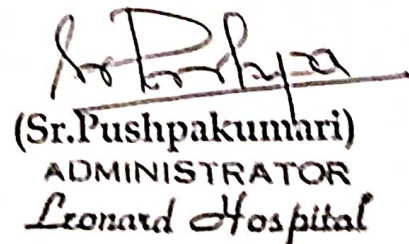 (Sr.Pushpakumari)
ADMINISTRATOR
Leonard Hospital